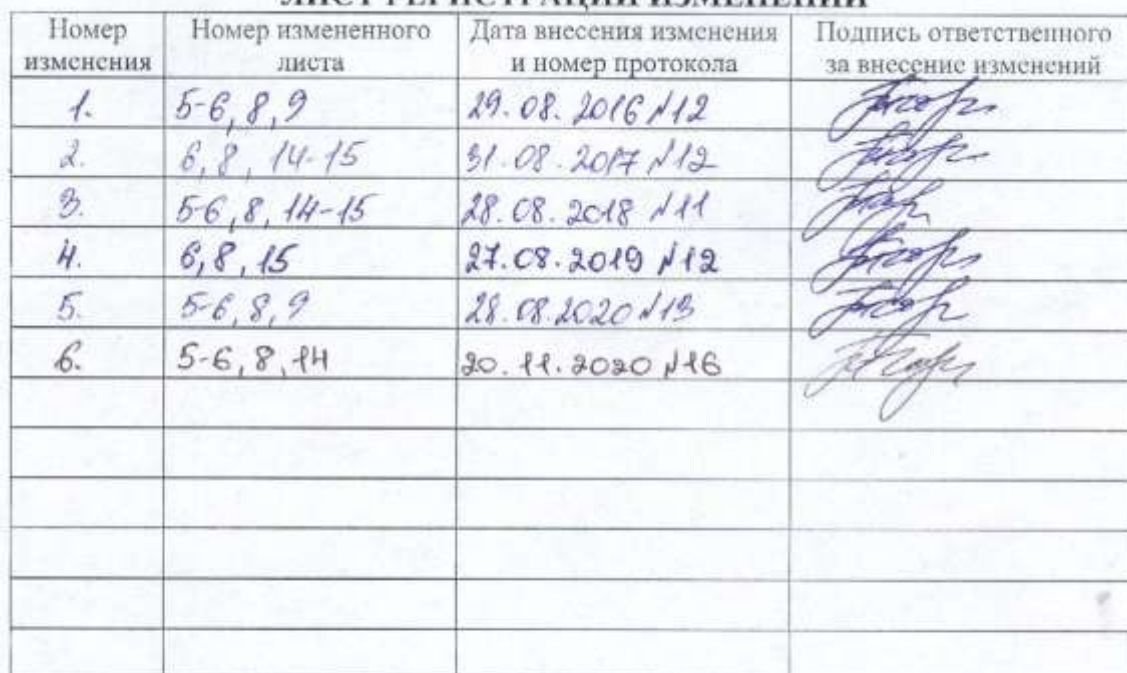 ЛИСТ РЕГИСТРАЦИИ ИЗМЕНЕНИЙ
Номер изменения Номер измененного листа Дата внесения изменения и номер протокола Подпись ответственного за внесение изменений
1. 5-6, 8, 9 29.08.2016 №12
2. 6, 8, 14-15 31.08.2017 №12
3. 5-6, 8, 14-15 28.08.2018 №11
4. 6, 8, 15 27.08.2019 №12
5. 5-6, 8, 9 28.08.2020 №13
6. 5-6, 8, 14 20.11.2020 №16